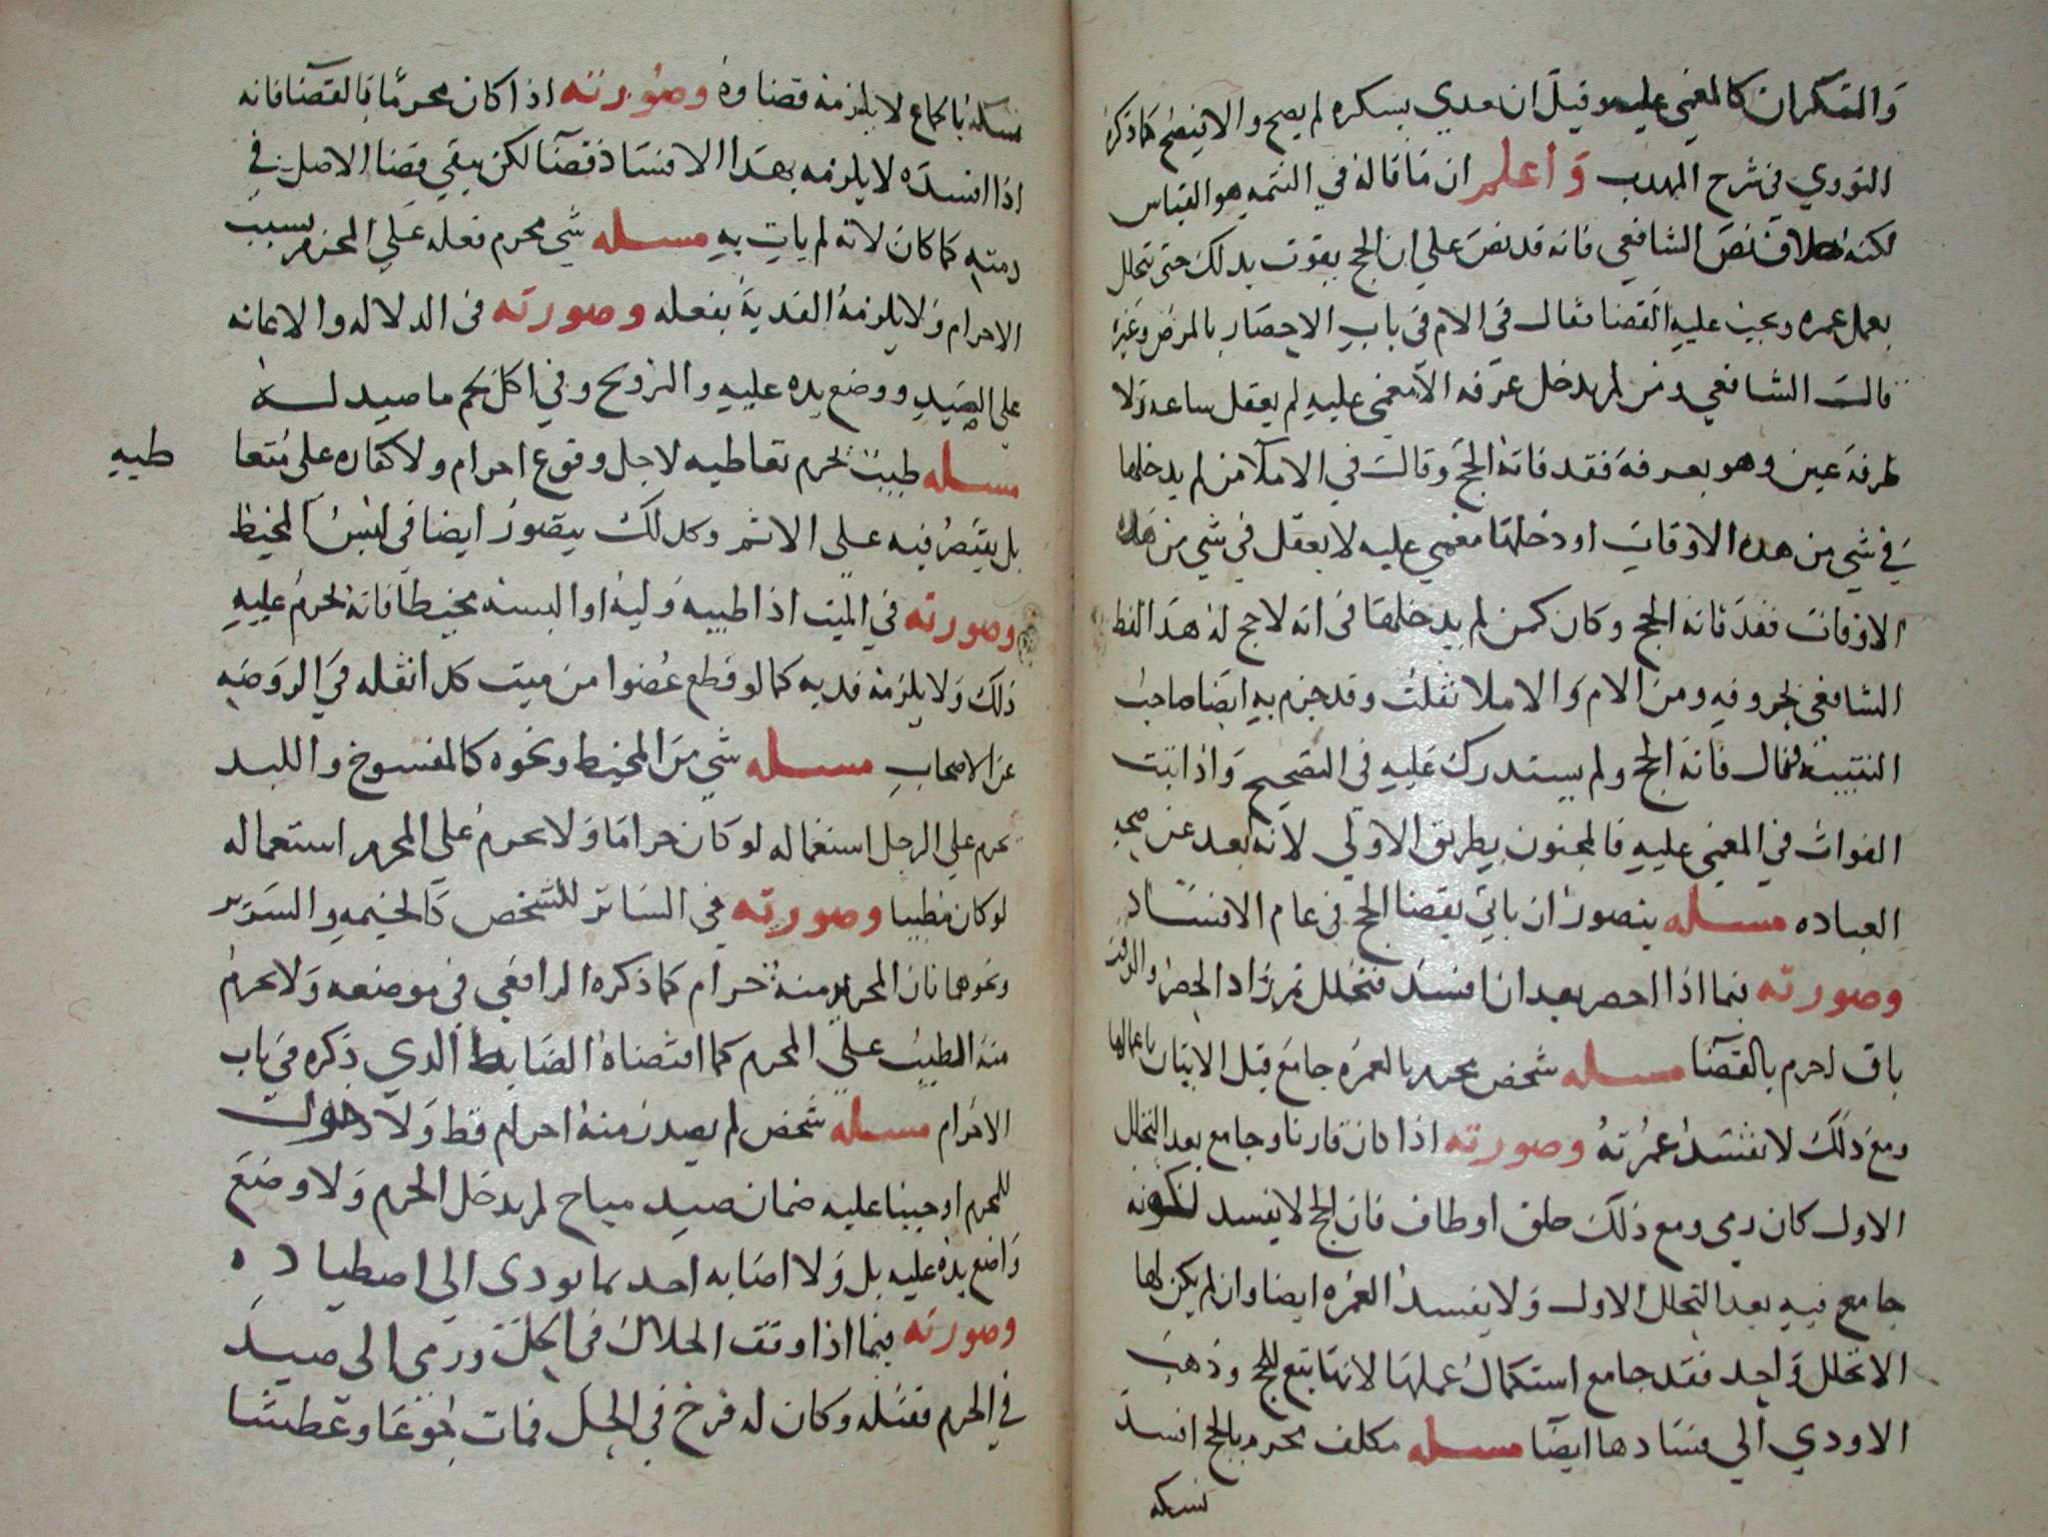 والسكران كالمغمي عليه وقيل ان تعدي بسكره لم يصح والا فيصح كما ذكره
النووي في شرح المهدب واعلم ان ما قاله في التتمه هو القياس
لكنه خلاف نص الشافعي فانه قد نص علي ان الحج يفوت بدلك حتي يتحلل
بعمل عمره ويجب عليه القضا فقال في الام في باب الاحصار بالمرض وغيره
قالت الشافعي ومن لم يدخل عرفه الا مغمي عليه لم يعقل ساعه ولا
طرفة عين وهو بعرفة فقد فاته الحج وقالت في الاملا من لم يدخلها
في شي من هده الاوقات او دخلها مغمي عليه لا يعقل في شي من هده
الاوقات فقد فاته الحج وكان كمن لم يدخلها في انه لاحج له هدا لفظ
الشافعي بحروفه ومن الام والاملا نقلت وقد جزم به ايضا صاحب
التنبيه فقال فاته الحج ولم يستدرك عليه في التصحيح واذا ثبت
الفوات في المغمي عليه فالمجنون بطريق الاولي لانه ابعد عن صحه
العباده مسله يتصور ان ياتي بقضا الحج في عام الافساد
وصورته فيما اذا احصر بعد ان افسد فتحلل ثم زاد الحصر والوقت
باق احرم بالقضا مسله شخص محرم بالعمره جامع قبل الاتيان باعمالها
ومع ذلك لا تفسد عمرته وصورته اذا كان قارنا وجامع بعد التحلل
الاول كان رمي ومع ذلك حلق او طاف فان الحج لا يفسد لكونه
جامع فيه بعد التحلل الاول ولا يفسد العمره ايضا وان لم يكن لها
الا تحلل واحد فقد جامع استكمال عملها لانها تبع للحج وذهب
الاودي الي فسادها ايضا مسله مكلف محرم بالحج افسد
نسكه
نسكه بالجماع لا يلزمه قضاوه وصورته اذا كان محرما بالقضا فانه
اذا افسده لا يلزمه بهدا الافساد قضا لكن يبقي قضا الاصل في
دمته كما كان لانه لم يات به مسله شي محرم فعله علي المحرم بسبب
الاحرام ولا يلزمه الفدية بفعله وصورته في الدلاله والاعانه
علي الصيد ووضع يده عليه والتزويج وفي اكل لحم ما صيد له
مسله طيب يحرم تعاطيه لاجل وقوع احرام ولا كفاره علي متعا
طيه
بل يقتصر فيه علي الاثم وكدلك يتصور ايضا في لبس المخيط
وصورته في الميت اذا طيبه وليه او البسه مخيطا فانه يحرم عليه
ذلك ولا يلزمه فديه كما لو قطع عضوا من ميت كدا نقله في الروضه
عن الاصحاب مسله شي من المخيط ونحوه كالمنسوج واللبد
يحرم علي الرجل استعماله لو كان حراما ولا يحرم علي المحرم استعماله
لو كان مطيبا وصورته في الساتر للشخص كالخيمه والستر
ونحوهما فان المحرم منه حرام كما ذكره الرافعي في موضعه ولا يحرم
منه المطيب علي المحرم كما اقتضاه الضابط الدي ذكره في باب
الاحرام مسله شخص لم يصدر منه احرام قط ولا دخول
للحرم اوجبنا عليه ضمان صيد مباح لم يدخل الحرم ولا وضع
واضع يده عليه بل ولا اصابه احد بما يودي الي اصطياده
وصورته فيما اذا وقف الحلال في الحل ورمي الي صيد
في الحرم فقتله وكان له فرخ في الحل فمات جوعا وعطشا